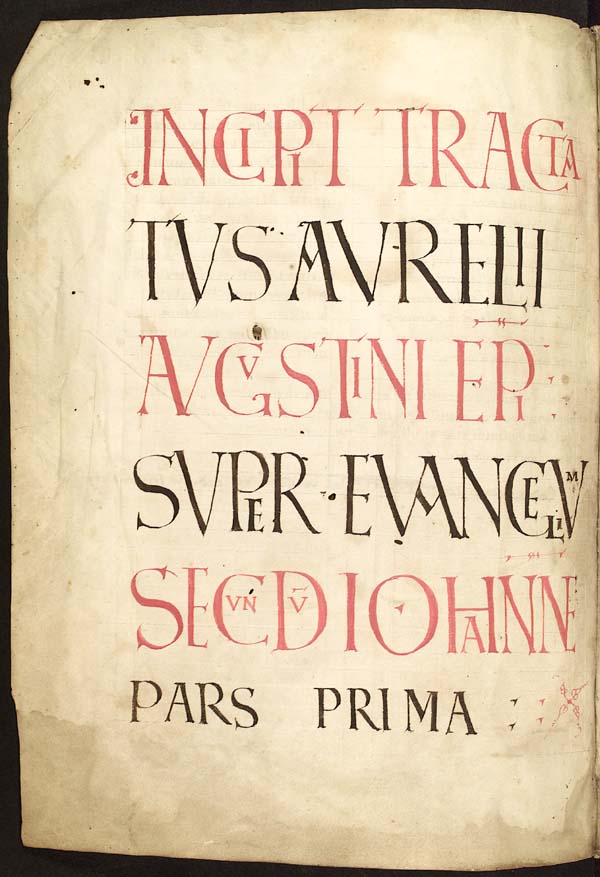 INCIPIT TRACTA
TVS AVRELII
AVGVSTINI EP̄I
SVPER · EVANGELIVM
SECVNDV̄ IOHANNĒ
PARS PRIMA